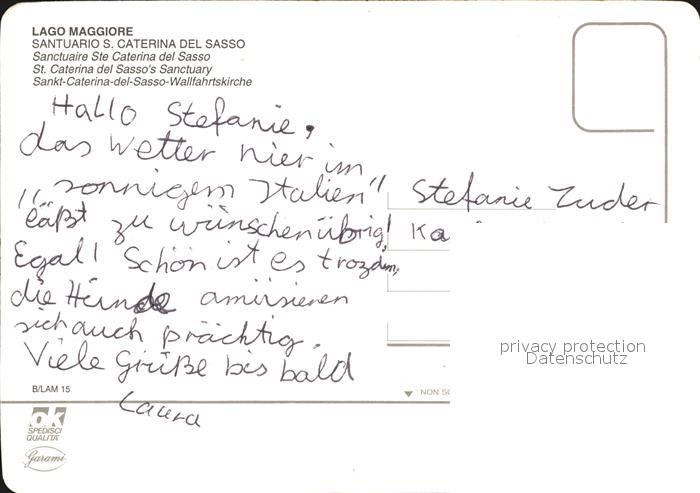 LAGO MAGGIORE
SANTUARIO S. CATERINA DEL SASSO
Sanctuaire Ste Caterina del Sasso
St. Caterina del Sasso's Sanctuary
Sankt-Caterina-del-Sasso-Wallfahrtskirche
Hallo Stefanie,
das Wetter hier im
"sonnigem Italien"
läßt zu wünschen übrig!
Egal! Schön ist es trozdem,
die Hunde amüsieren
sich auch prächtig.
Viele Grüße bis bald
Laura
Stefanie Zuder
Ka
privacy protection
Datenschutz
B/LAM 15
NON SC
ok
SPEDISCI
QUALITÀ
Garami